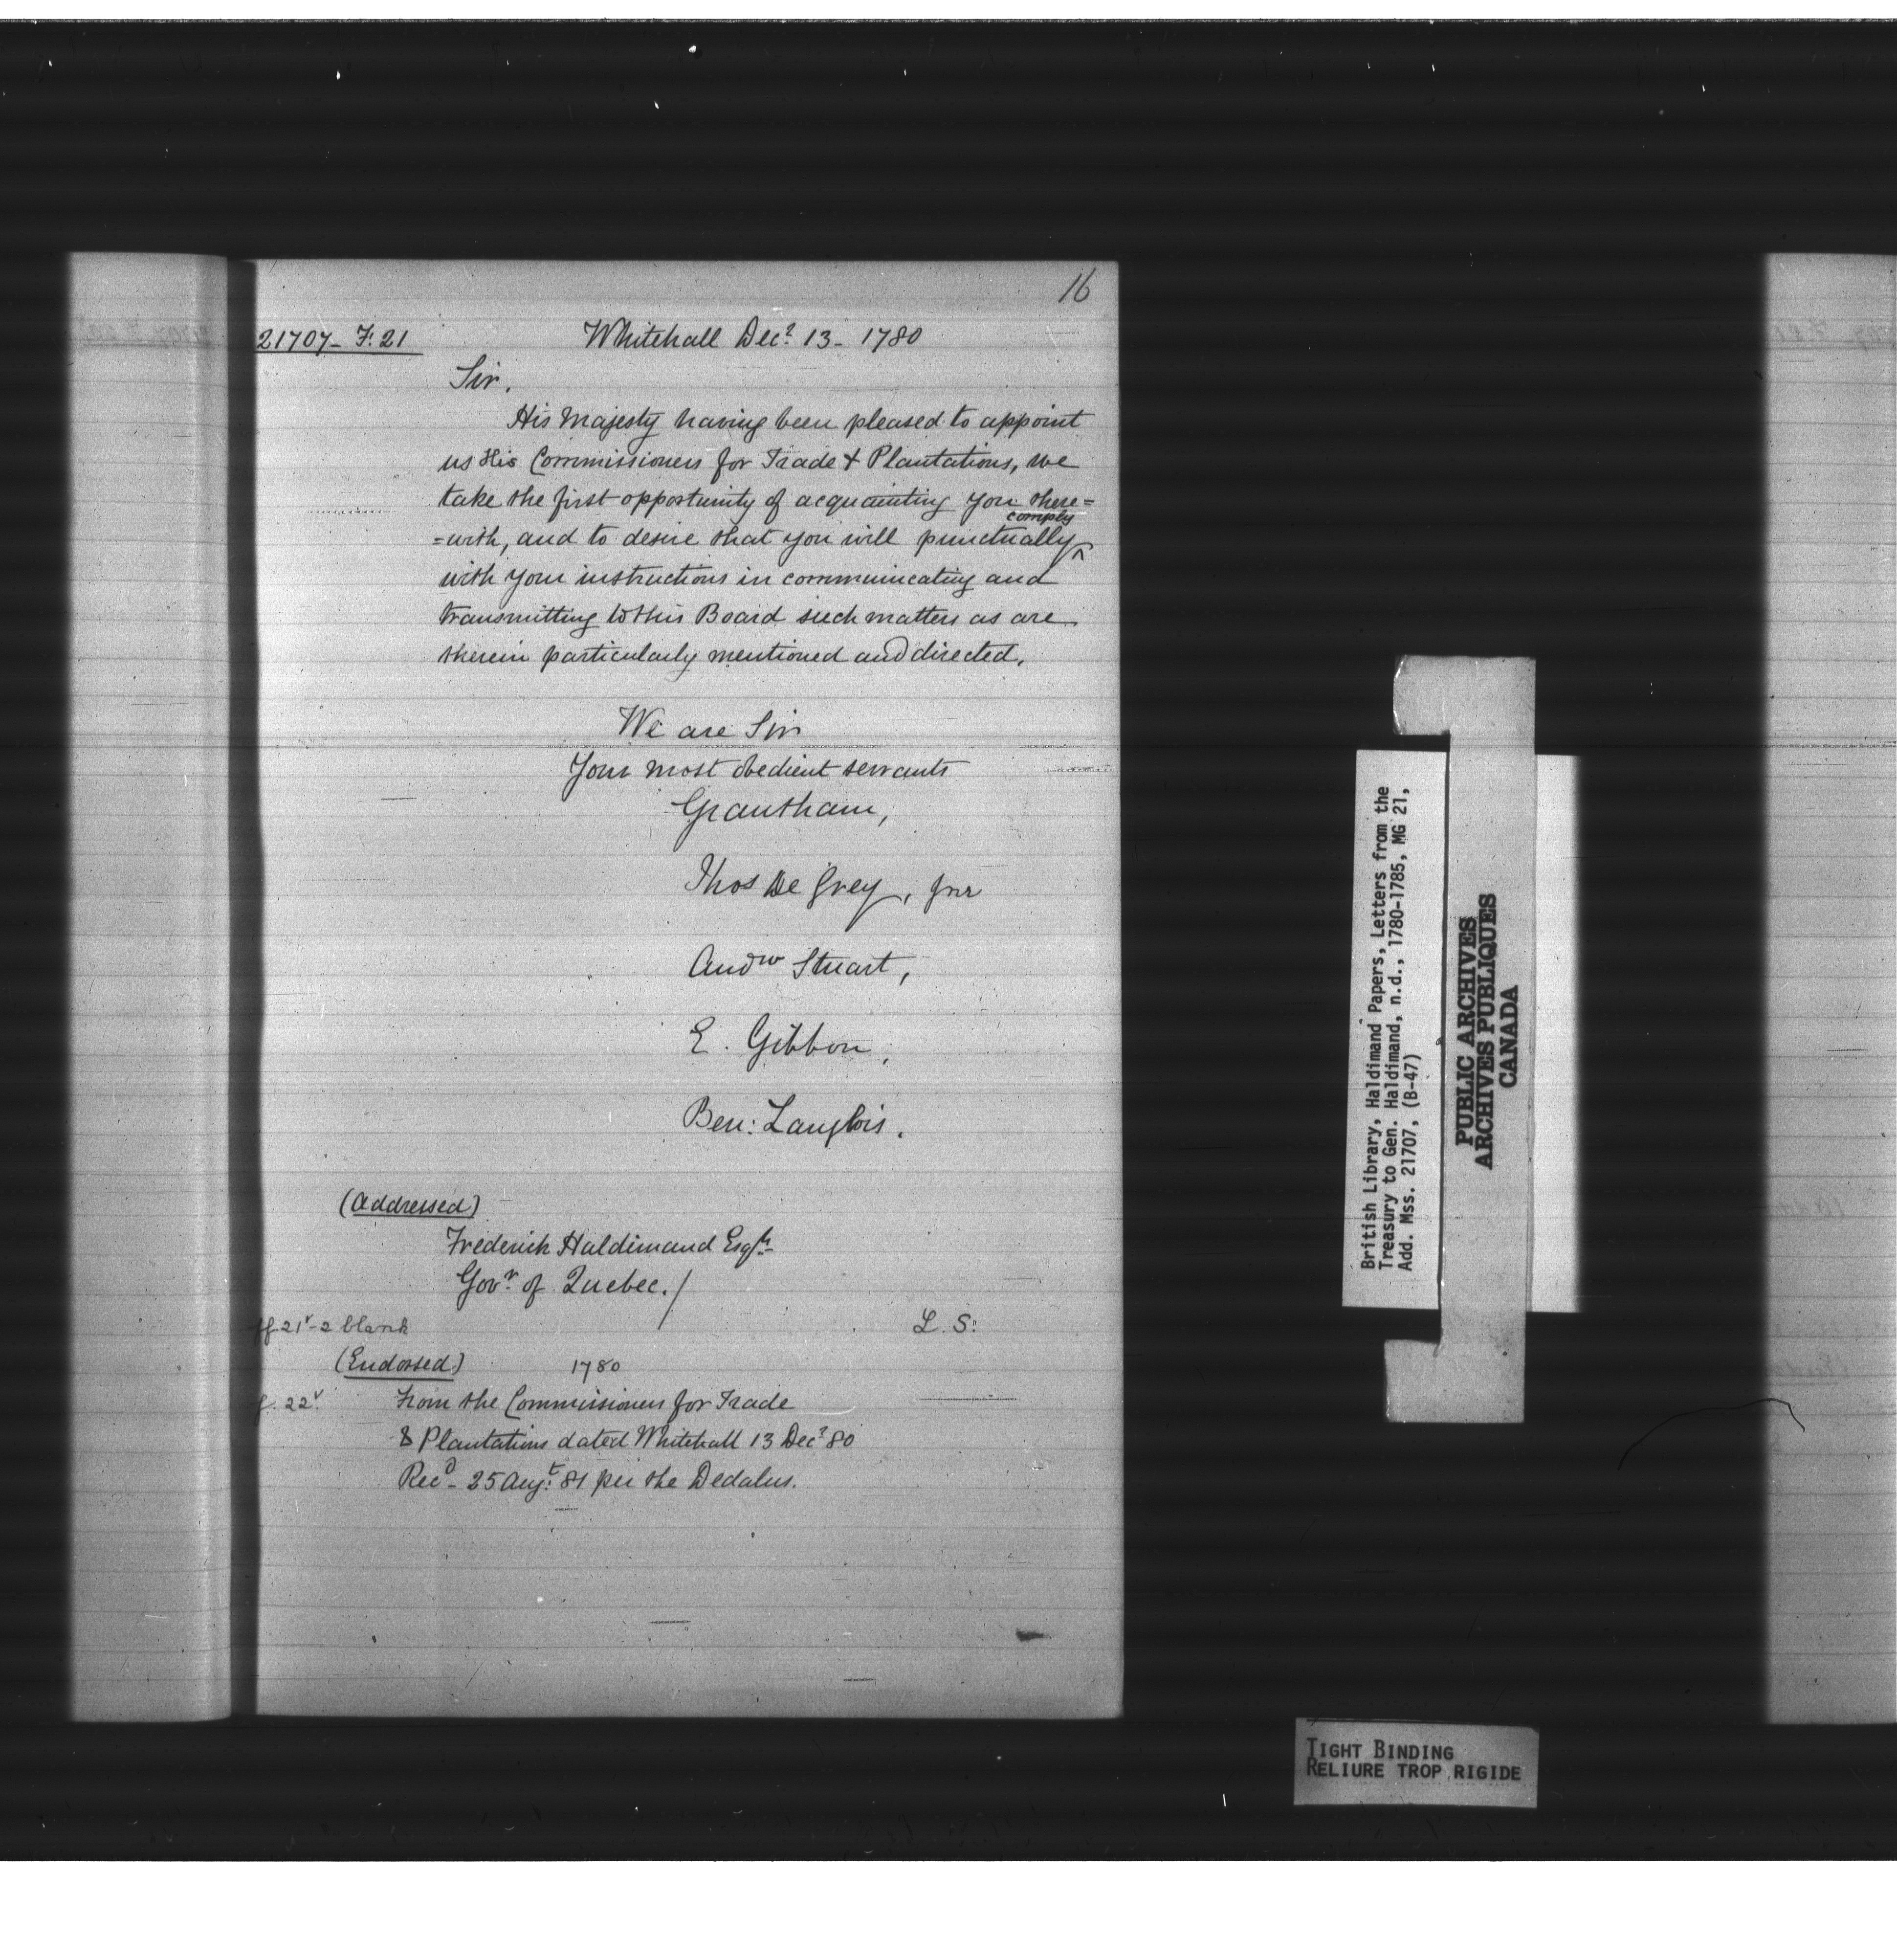 16
21707- F. 21
Whitehall Decr 13- 1780
Sir,
His Majesty having been pleased to appoint
us His Commissioners for Trade & Plantations, we
take the first opportunity of acquainting you there=
comply
=with, and to desire that you will punctually ^
with your instructions in communicating and
transmitting to this Board such matters as are
therein particularly mentioned and directed.
We are Sir
Your most obedient servants
Grantham,
Thos De Grey, Jnr
Andw Stuart,
E. Gibbon,
Ben: Langlois.
(Addressed)
Frederick Haldimand Esqr
Govr of Quebec./
ff. 21v-2 blank
L. S:
(Endorsed)
1780
f. 22v
From the Commissioners for Trade
& Plantations dated Whitehall 13 Decr 80
Recd - 25 Augt: 81 per the Dedalus.
British Library, Haldimand Papers, Letters from the
Treasury to Gen. Haldimand, n.d., 1780-1785, MG 21,
Add. Mss. 21707, (B-47)
PUBLIC ARCHIVES
ARCHIVES PUBLIQUES
CANADA
TIGHT BINDING
RELIURE TROP RIGIDE